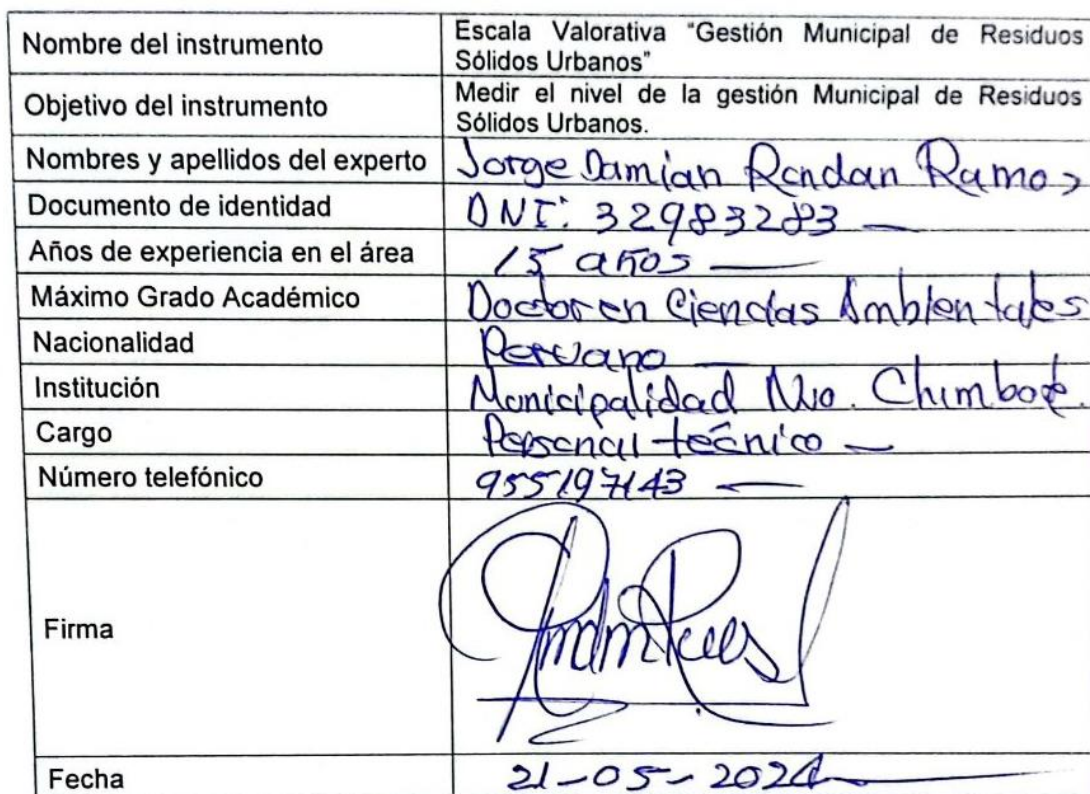 Nombre del instrumento
Escala Valorativa "Gestión Municipal de Residuos
Sólidos Urbanos"
Objetivo del instrumento
Medir el nivel de la gestión Municipal de Residuos
Sólidos Urbanos.
Nombres y apellidos del experto
Jorge Damian Rondan Ramos
Documento de identidad
DNI: 32983283
Años de experiencia en el área
15 años
Máximo Grado Académico
Doctor en Ciencias Ambientales
Nacionalidad
Peruano
Institución
Municipalidad Nvo. Chimbote.
Cargo
Personal técnico
Número telefónico
955197143
Firma
Fecha
21-05-2024